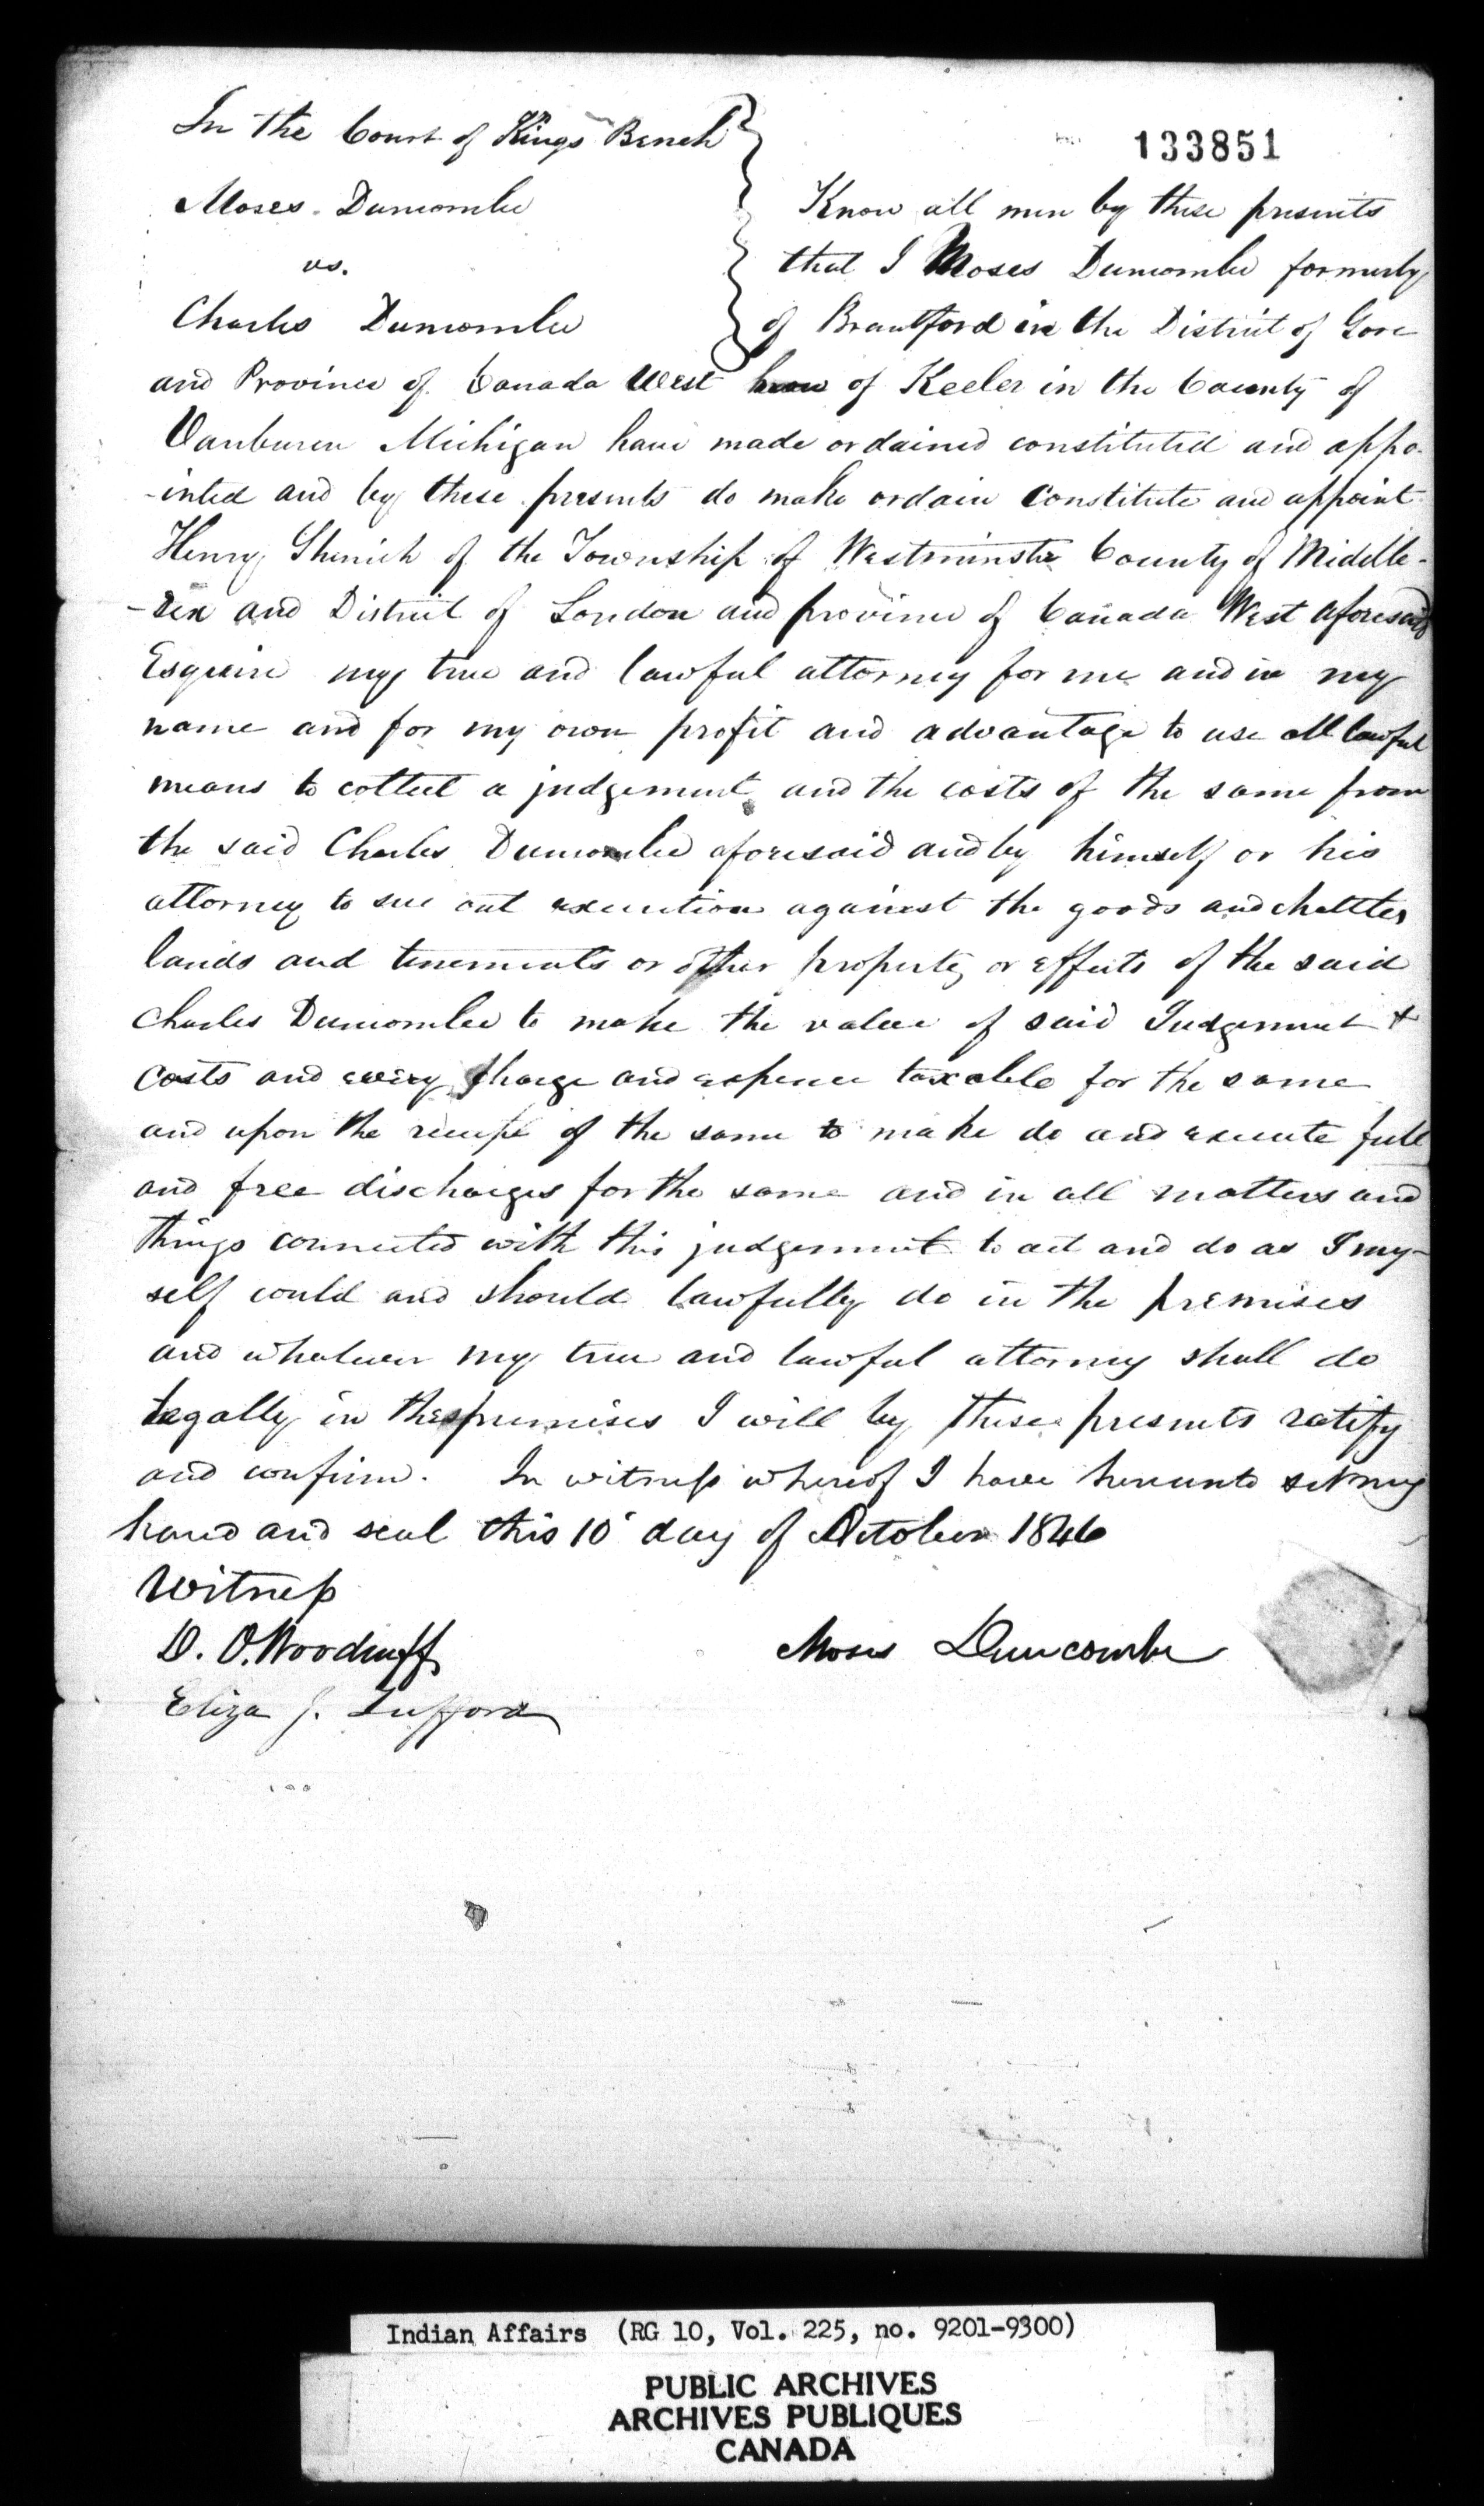 In the Court of Kings Bench
133851
Moses Duncombe
Know all men by these presents
vs.
that I Moses Duncombe formerly
Charles Duncombe
of Brantford in the District of Gore
and Province of Canada West of Keeler in the County of
Vanburen Michigan have made ordained constituted and appo-
-inted and by these presents do make ordain constitute and appoint
Henry Shenich of the Township of Westminster County of Middle-
-sex and District of London and province of Canada West aforesaid
Esquire my true and lawful attorney for me and in my
name and for my own profit and advantage to use all lawful
means to collect a judgement and the costs of the same from
the said Charles Duncombe aforesaid and by himself or his
attorney to sue out execution against the goods and chattles
lands and tenements or other property or effects of the said
Charles Duncombe to make the value of said Judgement &
costs and every charge and expence taxable for the same
and upon the receipt of the same to make do and execute full
and free discharges for the same and in all matters and
things connected with this judgement to act and do as I my-
self could and should lawfully do in the premises
and whatever my true and lawful attorney shall do
legally in the premises I will by these presents ratify
and confirm. In witness whereof I have hereunto set my
hand and seal this 10 day of October 1846
Witness
D. O. Woodruff
Moses Duncombe
Eliza J. Tufford
Indian Affairs (RG 10, Vol. 225, no. 9201-9300)
PUBLIC ARCHIVES
ARCHIVES PUBLIQUES
CANADA